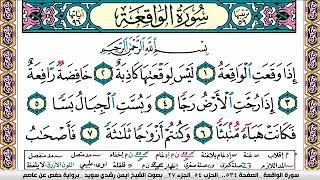 سُورَةُ الْوَاقِعَةِ
بِسْمِ اللَّهِ الرَّحْمَٰنِ الرَّحِيمِ
إِذَا وَقَعَتِ الْوَاقِعَةُ ١ لَيْسَ لِوَقْعَتِهَا كَاذِبَةٌ ٢ خَافِضَةٌ رَّافِعَةٌ
٣ إِذَا رُجَّتِ الْأَرْضُ رَجًّا ٤ وَبُسَّتِ الْجِبَالُ بَسًّا ٥
فَكَانَتْ هَبَاءً مُّنْبَثًّا ٦ وَكُنْتُمْ أَزْوَاجًا ثَلَاثَةً ٧ فَأَصْحَابُ
سورة الواقعة الصفحة ٥٣٤ الجزء ٢٧ بصوت الشيخ أيمن رشدي سويد - برواية حفص عن عاصم